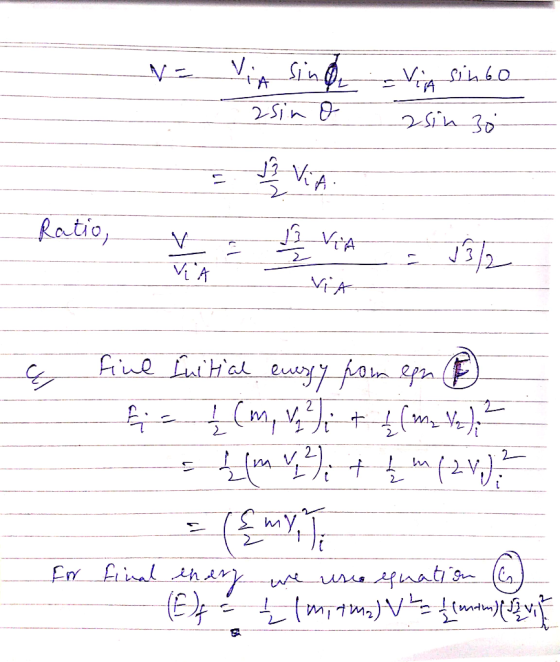 V = V_iA Sin ϕ_2 / 2 Sin θ = V_iA Sin 60 / 2 Sin 30°
= √3/2 V_iA.
Ratio, V / V_iA = √3/2 V_iA / V_iA = √3/2
Find Initial energy from eqn (F)
E_i = 1/2 (m_1 V_1^2)_i + 1/2 (m_2 V_2)_i^2
= 1/2 (m V_1^2)_i + 1/2 m (2V_1)_i^2
= (5/2 m V_1^2)_i
For final energy we use equation (G)
(E)_f = 1/2 (m_1+m_2) V^2 = 1/2 (m+m) (√3/2 V_1)_i^2